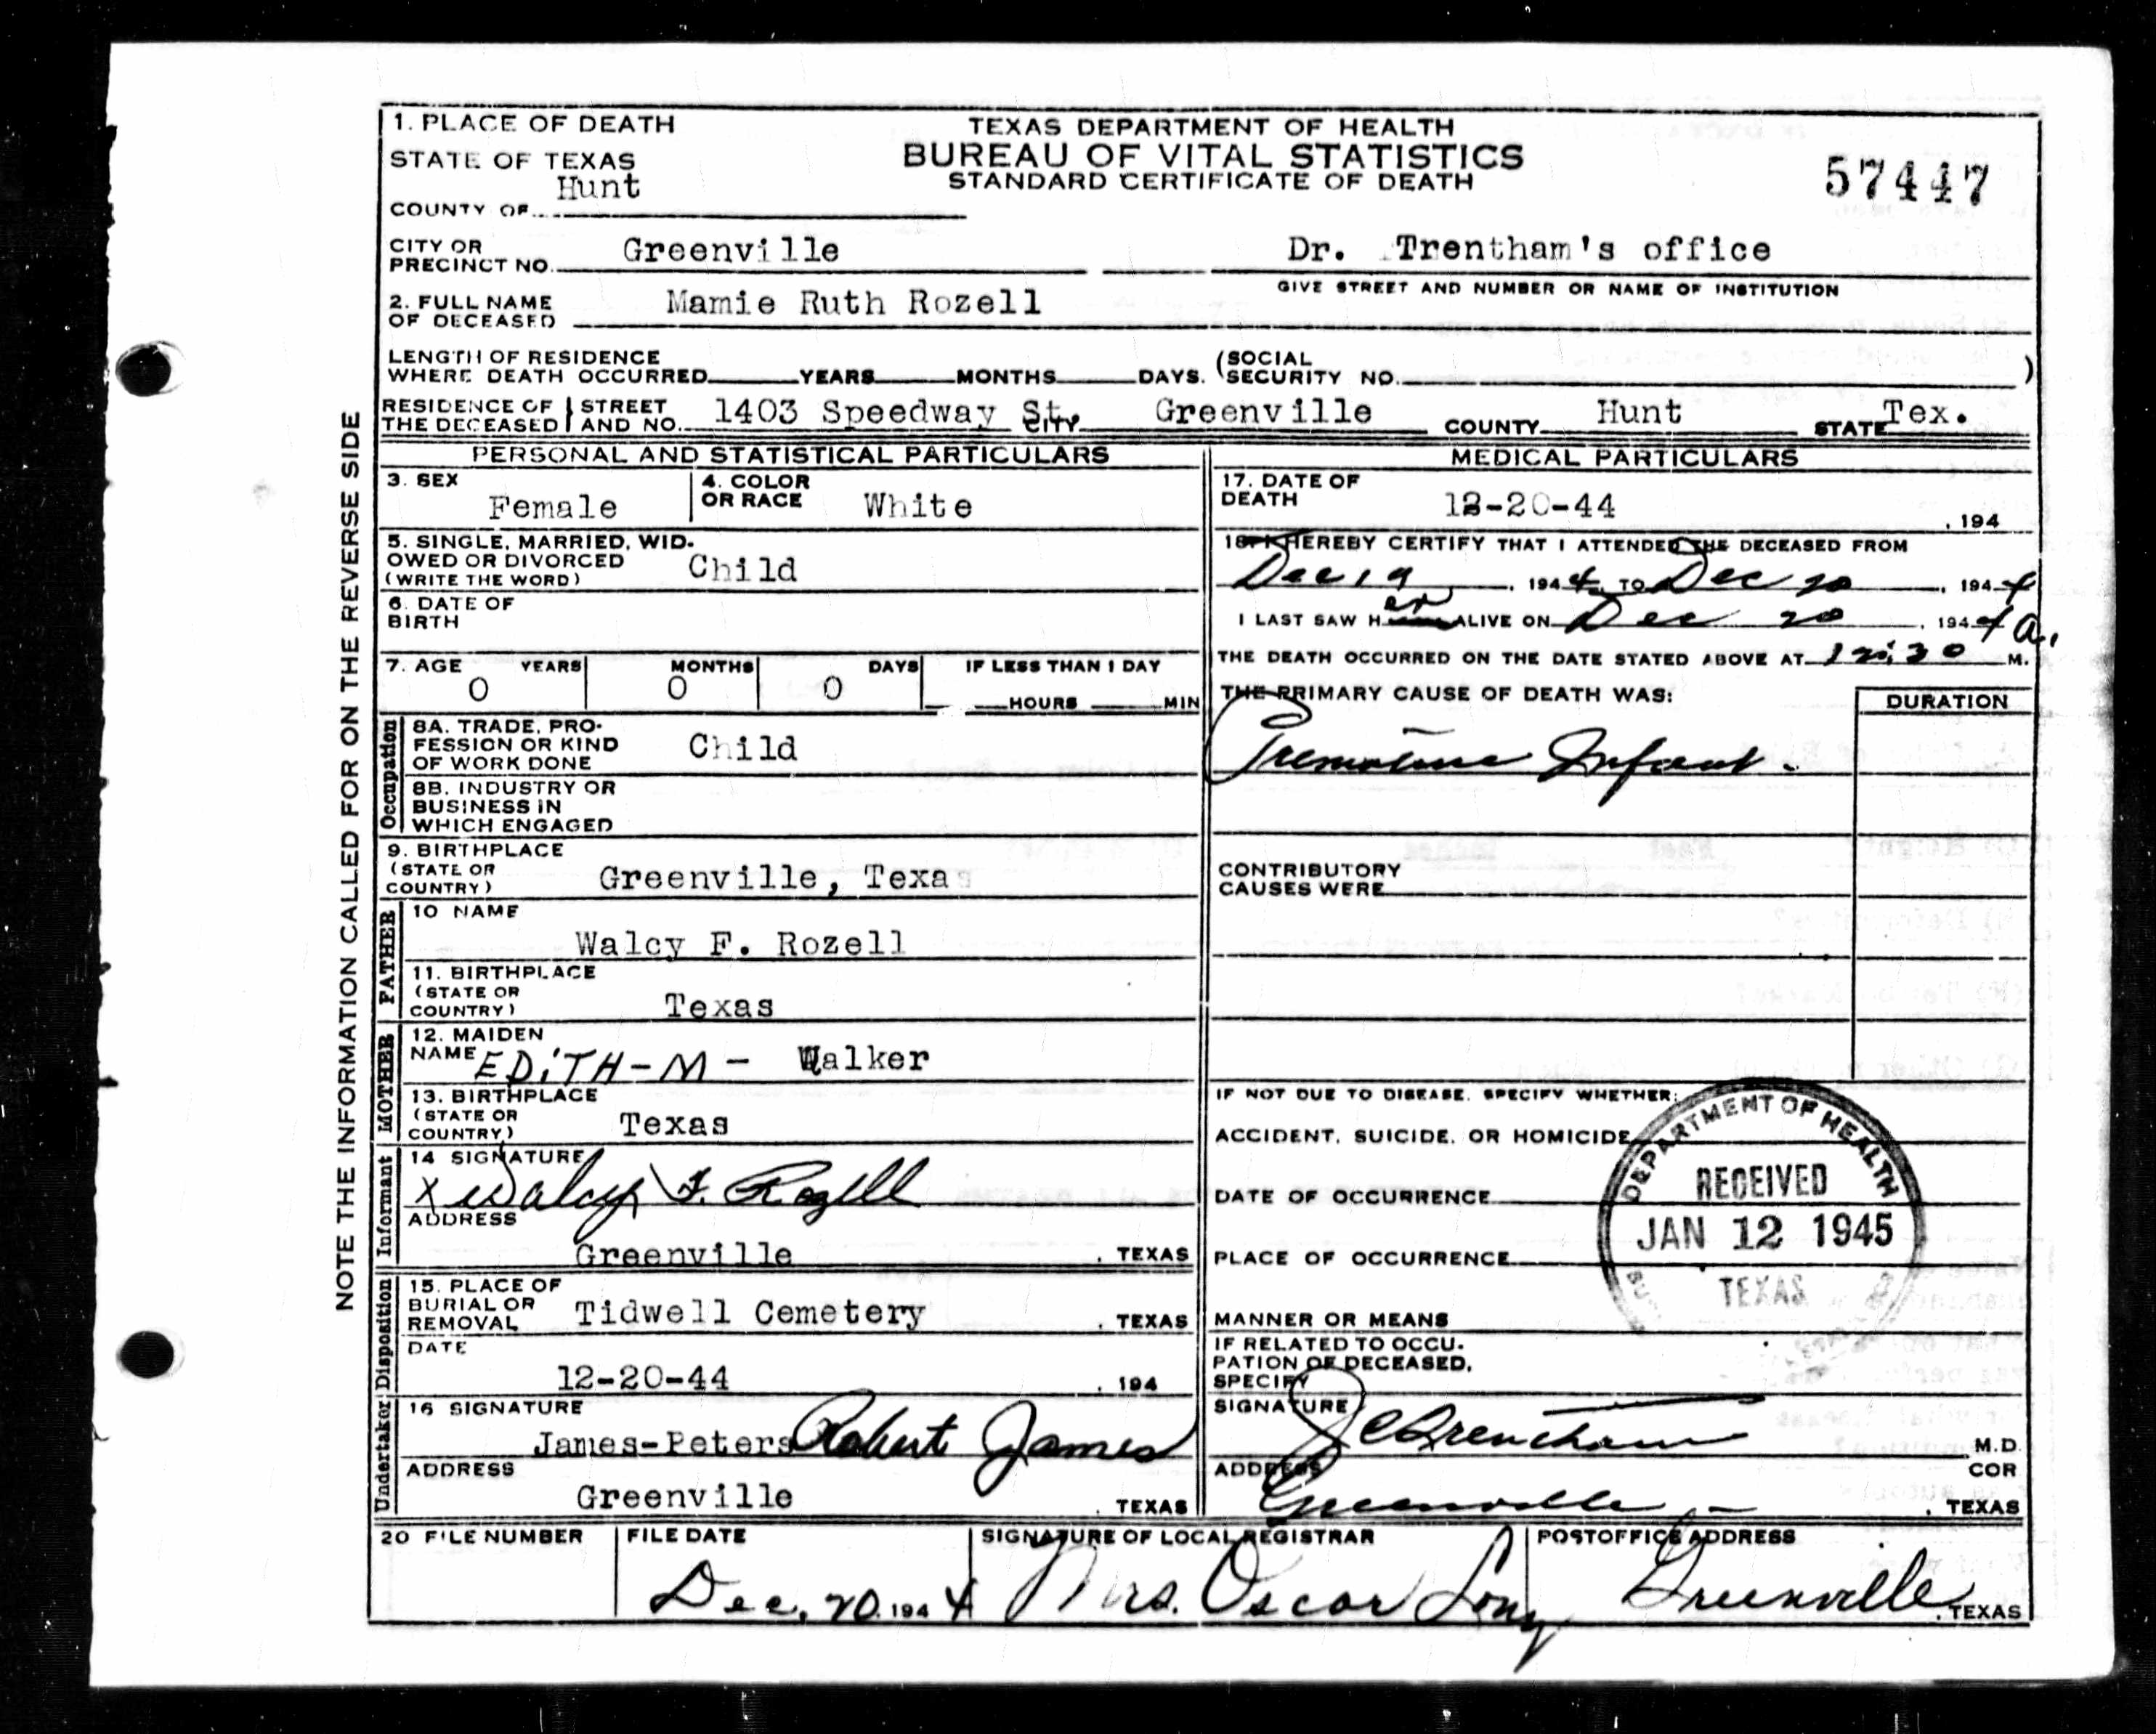 NOTE THE INFORMATION CALLED FOR ON THE REVERSE SIDE
1. PLACE OF DEATH
STATE OF TEXAS
COUNTY OF Hunt
TEXAS DEPARTMENT OF HEALTH
BUREAU OF VITAL STATISTICS
STANDARD CERTIFICATE OF DEATH
57447
CITY OR
PRECINCT NO. Greenville
Dr. Trentham's office
GIVE STREET AND NUMBER OR NAME OF INSTITUTION
2. FULL NAME
OF DECEASED Mamie Ruth Rozell
LENGTH OF RESIDENCE
WHERE DEATH OCCURRED YEARS MONTHS DAYS. (SOCIAL
SECURITY NO. )
RESIDENCE OF
THE DECEASED
STREET
AND NO. 1403 Speedway St. CITY Greenville COUNTY Hunt STATE Tex.
PERSONAL AND STATISTICAL PARTICULARS
3. SEX
Female
4. COLOR
OR RACE White
5. SINGLE, MARRIED, WID-
OWED OR DIVORCED
(WRITE THE WORD) Child
6. DATE OF
BIRTH
7. AGE YEARS MONTHS DAYS IF LESS THAN 1 DAY
0 0 0 HOURS MIN
Occupation
8A. TRADE, PRO-
FESSION OR KIND
OF WORK DONE Child
8B. INDUSTRY OR
BUSINESS IN
WHICH ENGAGED
9. BIRTHPLACE
(STATE OR
COUNTRY) Greenville, Texas
FATHER
10 NAME
Walcy F. Rozell
11. BIRTHPLACE
(STATE OR
COUNTRY) Texas
MOTHER
12. MAIDEN
NAME EDiTH-M- Walker
13. BIRTHPLACE
(STATE OR
COUNTRY) Texas
Informant
14 SIGNATURE
X Walcy F. Rozell
ADDRESS
Greenville , TEXAS
Disposition
15. PLACE OF
BURIAL OR
REMOVAL Tidwell Cemetery , TEXAS
DATE
12-20-44 , 194
Undertaker
16 SIGNATURE
James-Peters Robert James
ADDRESS
Greenville , TEXAS
MEDICAL PARTICULARS
17. DATE OF
DEATH 12-20-44 , 194
18. I HEREBY CERTIFY THAT I ATTENDED THE DECEASED FROM
Dec 19 , 1944 TO Dec 20 , 1944
I LAST SAW H er ALIVE ON Dec 20 , 1944
THE DEATH OCCURRED ON THE DATE STATED ABOVE AT 12:30 a. M.
THE PRIMARY CAUSE OF DEATH WAS:
DURATION
Premature Infant.
CONTRIBUTORY
CAUSES WERE
IF NOT DUE TO DISEASE, SPECIFY WHETHER:
ACCIDENT, SUICIDE, OR HOMICIDE
DATE OF OCCURRENCE
PLACE OF OCCURRENCE
MANNER OR MEANS
DEPARTMENT OF HEALTH
RECEIVED
JAN 12 1945
TEXAS
IF RELATED TO OCCU-
PATION OF DECEASED,
SPECIFY
SIGNATURE
Trentham M.D.
COR
ADDRESS
Greenville , TEXAS
20 FILE NUMBER
FILE DATE
Dec. 20, 1944
SIGNATURE OF LOCAL REGISTRAR
Mrs. Oscar Long
POSTOFFICE ADDRESS
Greenville , TEXAS